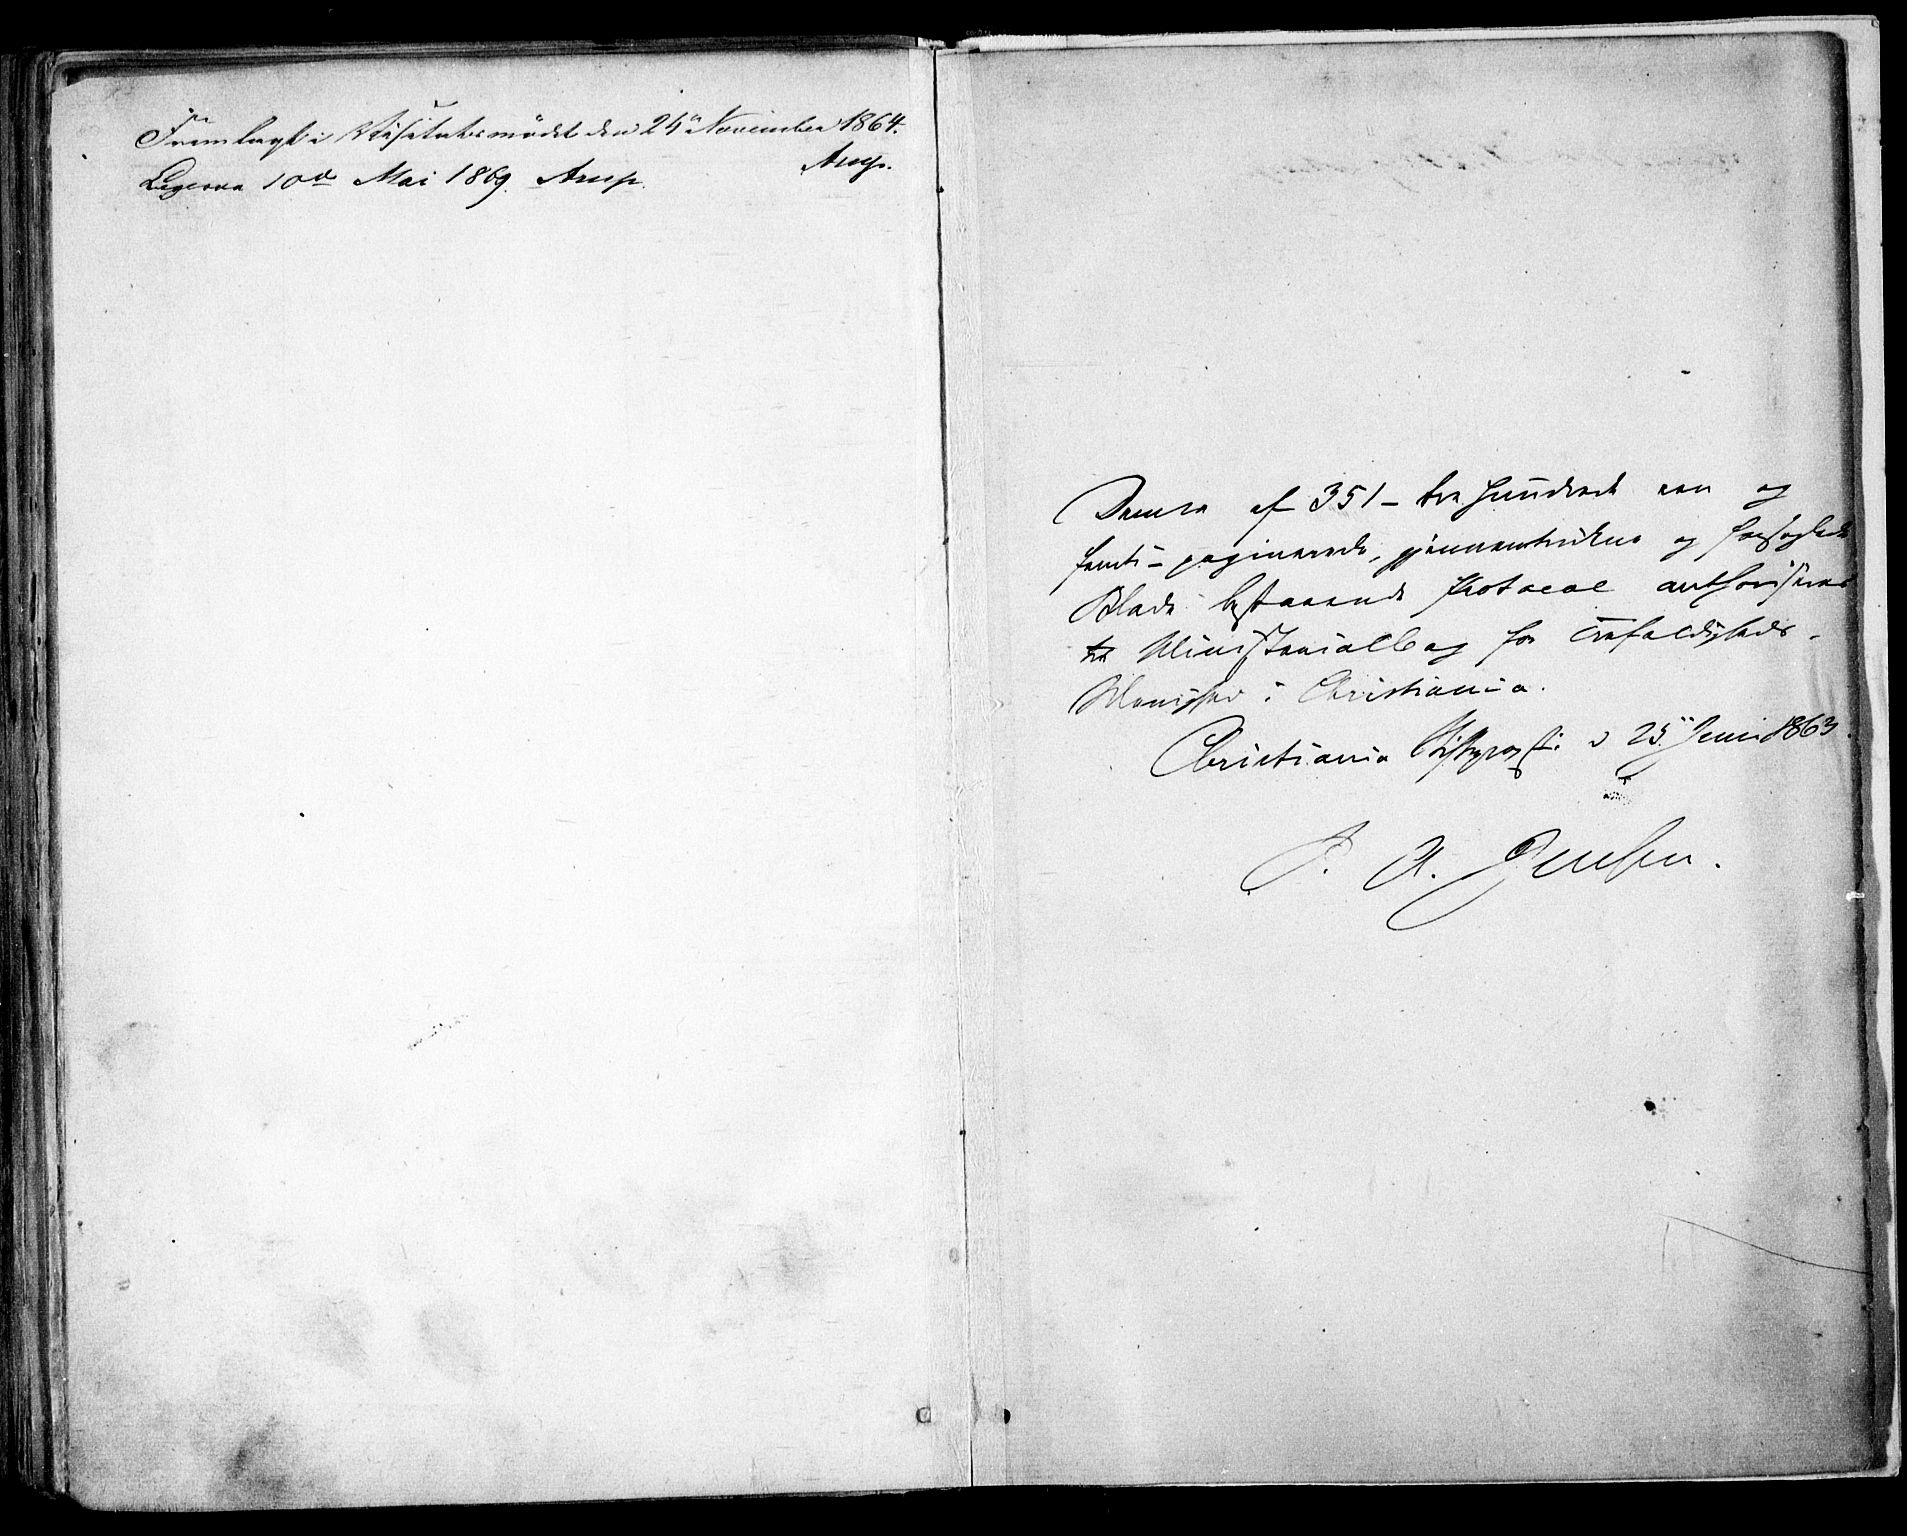 Fremlagt i Visitatsmödet den 24de November 1864.
Arup.
Ligesaa 10de Mai 1869. Arup.
Denne af 351 – tre hundrede een og
femti – paginerede, gjennemtrukne og forseglede
Blade bestaaende Protocol authoriseres
til Ministerialbog for Trefoldigheds-
Menighed i Christiania.
Christiania Stiftsprovsti d 25 Juni 1863.
P. A. Jensen.